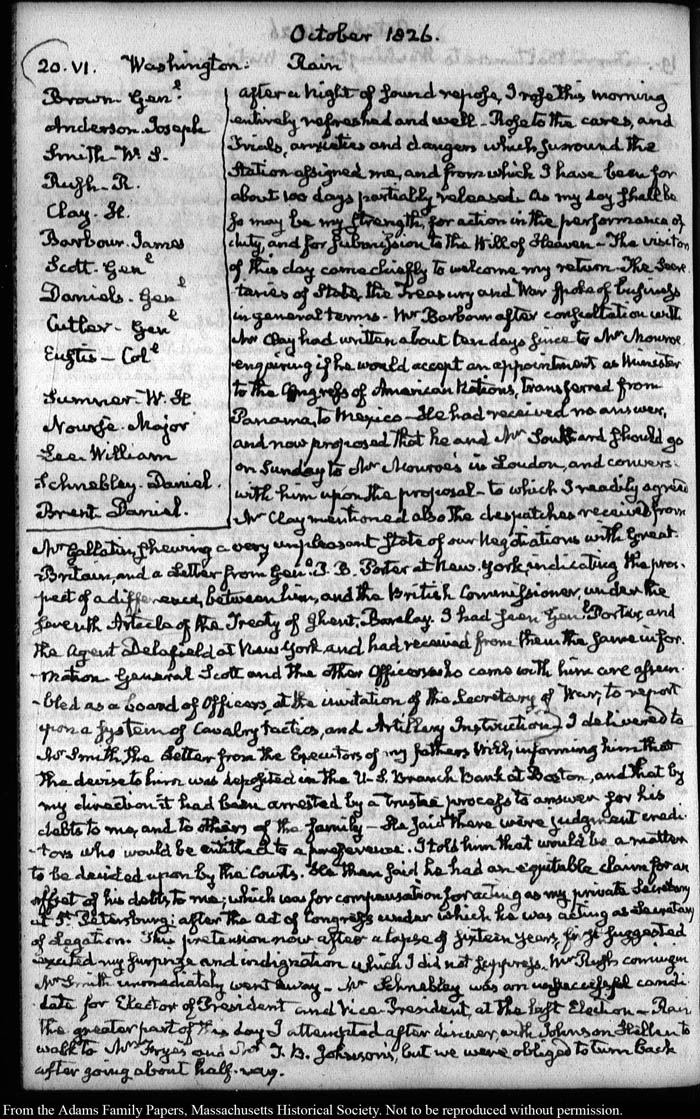 October 1826.
20. VI. Washington. Rain
Brown. Genl.
Anderson. Joseph
Smith. W. S.
Rush. R.
Clay. H.
Barbour. James
Scott. Genl
Daniels. Genl
Cutler. Genl
Eustis — Coll
Sumner. W. H.
Nourse. Major
Lee. William
Schnebley. Daniel.
Brent. Daniel.
After a Night of sound repose, I rose this morning
entirely refreshed and well — Rose to the cares, and
Trials, anxieties and dangers which surround the
Station assigned me, and from which I have been for
about 100 days partially released. As my day shall be
so may be my strength, for action in the performance of
duty, and for submission to the Will of Heaven — The visitors
of this day came chiefly to welcome my return. The Secre-
taries of State, the Treasury and War spoke of business
in general terms. Mr Barbour after consultation with
Mr Clay had written about ten days since to Mr Monroe
enquiring if he would accept an appointment as Minister
to the Congress of American Nations, transferred from
Panama, to Mexico — He had received no answer,
and now proposed that he and Mr Southard should go
on Sunday to Mr Monroe's in Loudon, and convers
with him upon the proposal — to which I readily agreed
Mr Clay mentioned also the despatches received from
Mr Gallatin, shewing a very unpleasant state of our Negotiations with Great-
Britain, and a Letter from Genl. P. B. Porter at New-York, indicating the pros-
pect of a difference, between him, and the British Commissioner, under the
seventh Article of the Treaty of Ghent, Barclay. I had seen Genl Porter, and
the Agent Delafield at New York and had received from them the same infor-
-mation. General Scott and the other Officers who came with him are assem-
-bled as a Board of Officers, at the invitation of the Secretary of War, to report
upon a system of Cavalry tactics, and Artillery Instruction. I delivered to
Mr Smith, the Letter from the Executors of my father's Will, informing him that
the devise to him was deposited in the U.S. Branch Bank at Boston, and that by
my direction it had been arrested by a trustee process to answer for his
debts to me, and to others of the family — He said there were judgment credi-
-tors who would be entitled to a preference. I told him that would be a matter
to be decided upon by the Courts. He then said he had an equitable claim for an
offset of his debts to me; which was for compensation for acting as my private Secretary
at St. Petersburg; after the Act of Congress under which he was acting as Secretary
of Legation. This pretension now after a lapse of sixteen years, first suggested
excited my surprize and indignation which I did not suppress. Mr Rush coming in
Mr Smith immediately went away — Mr Schnebley was an unsuccessful candi-
date for Elector of President and Vice-President, at the last Election — Rain
the greater part of this day I attempted after dinner, with Johnson Hellen to
walk to Mr Frye's and Mr T. B. Johnson's, but we were obliged to turn back
after going about half-way.
From the Adams Family Papers, Massachusetts Historical Society. Not to be reproduced without permission.